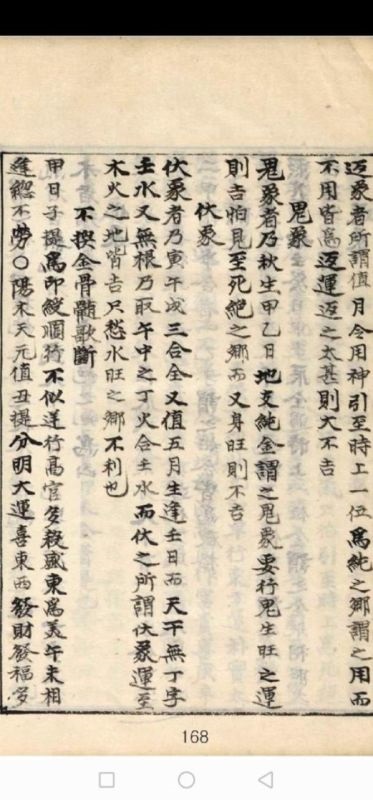 返象者所謂值月令用神引至時上一位為純之鄉謂之用而
不用皆為返運返之太甚則大不吉
鬼象
鬼象者乃秋生甲乙日地支純金謂之鬼象要行鬼生旺之運
則吉怕見至死絕之鄉而又身旺則不吉
伏象
伏象者乃寅午戌三合全又值五月生逢壬日而天干無丁字
壬水又無根乃取午中之丁火合壬水而伏之所謂伏象運至
木火之地皆吉只愁水旺之鄉不利也
不按金骨髓歌斷
甲日子提為印綬順行不似逆行高官多殺盛東為美午未相
逢總不勞○陽木天元值丑提分明大運喜東西發財發福多
168